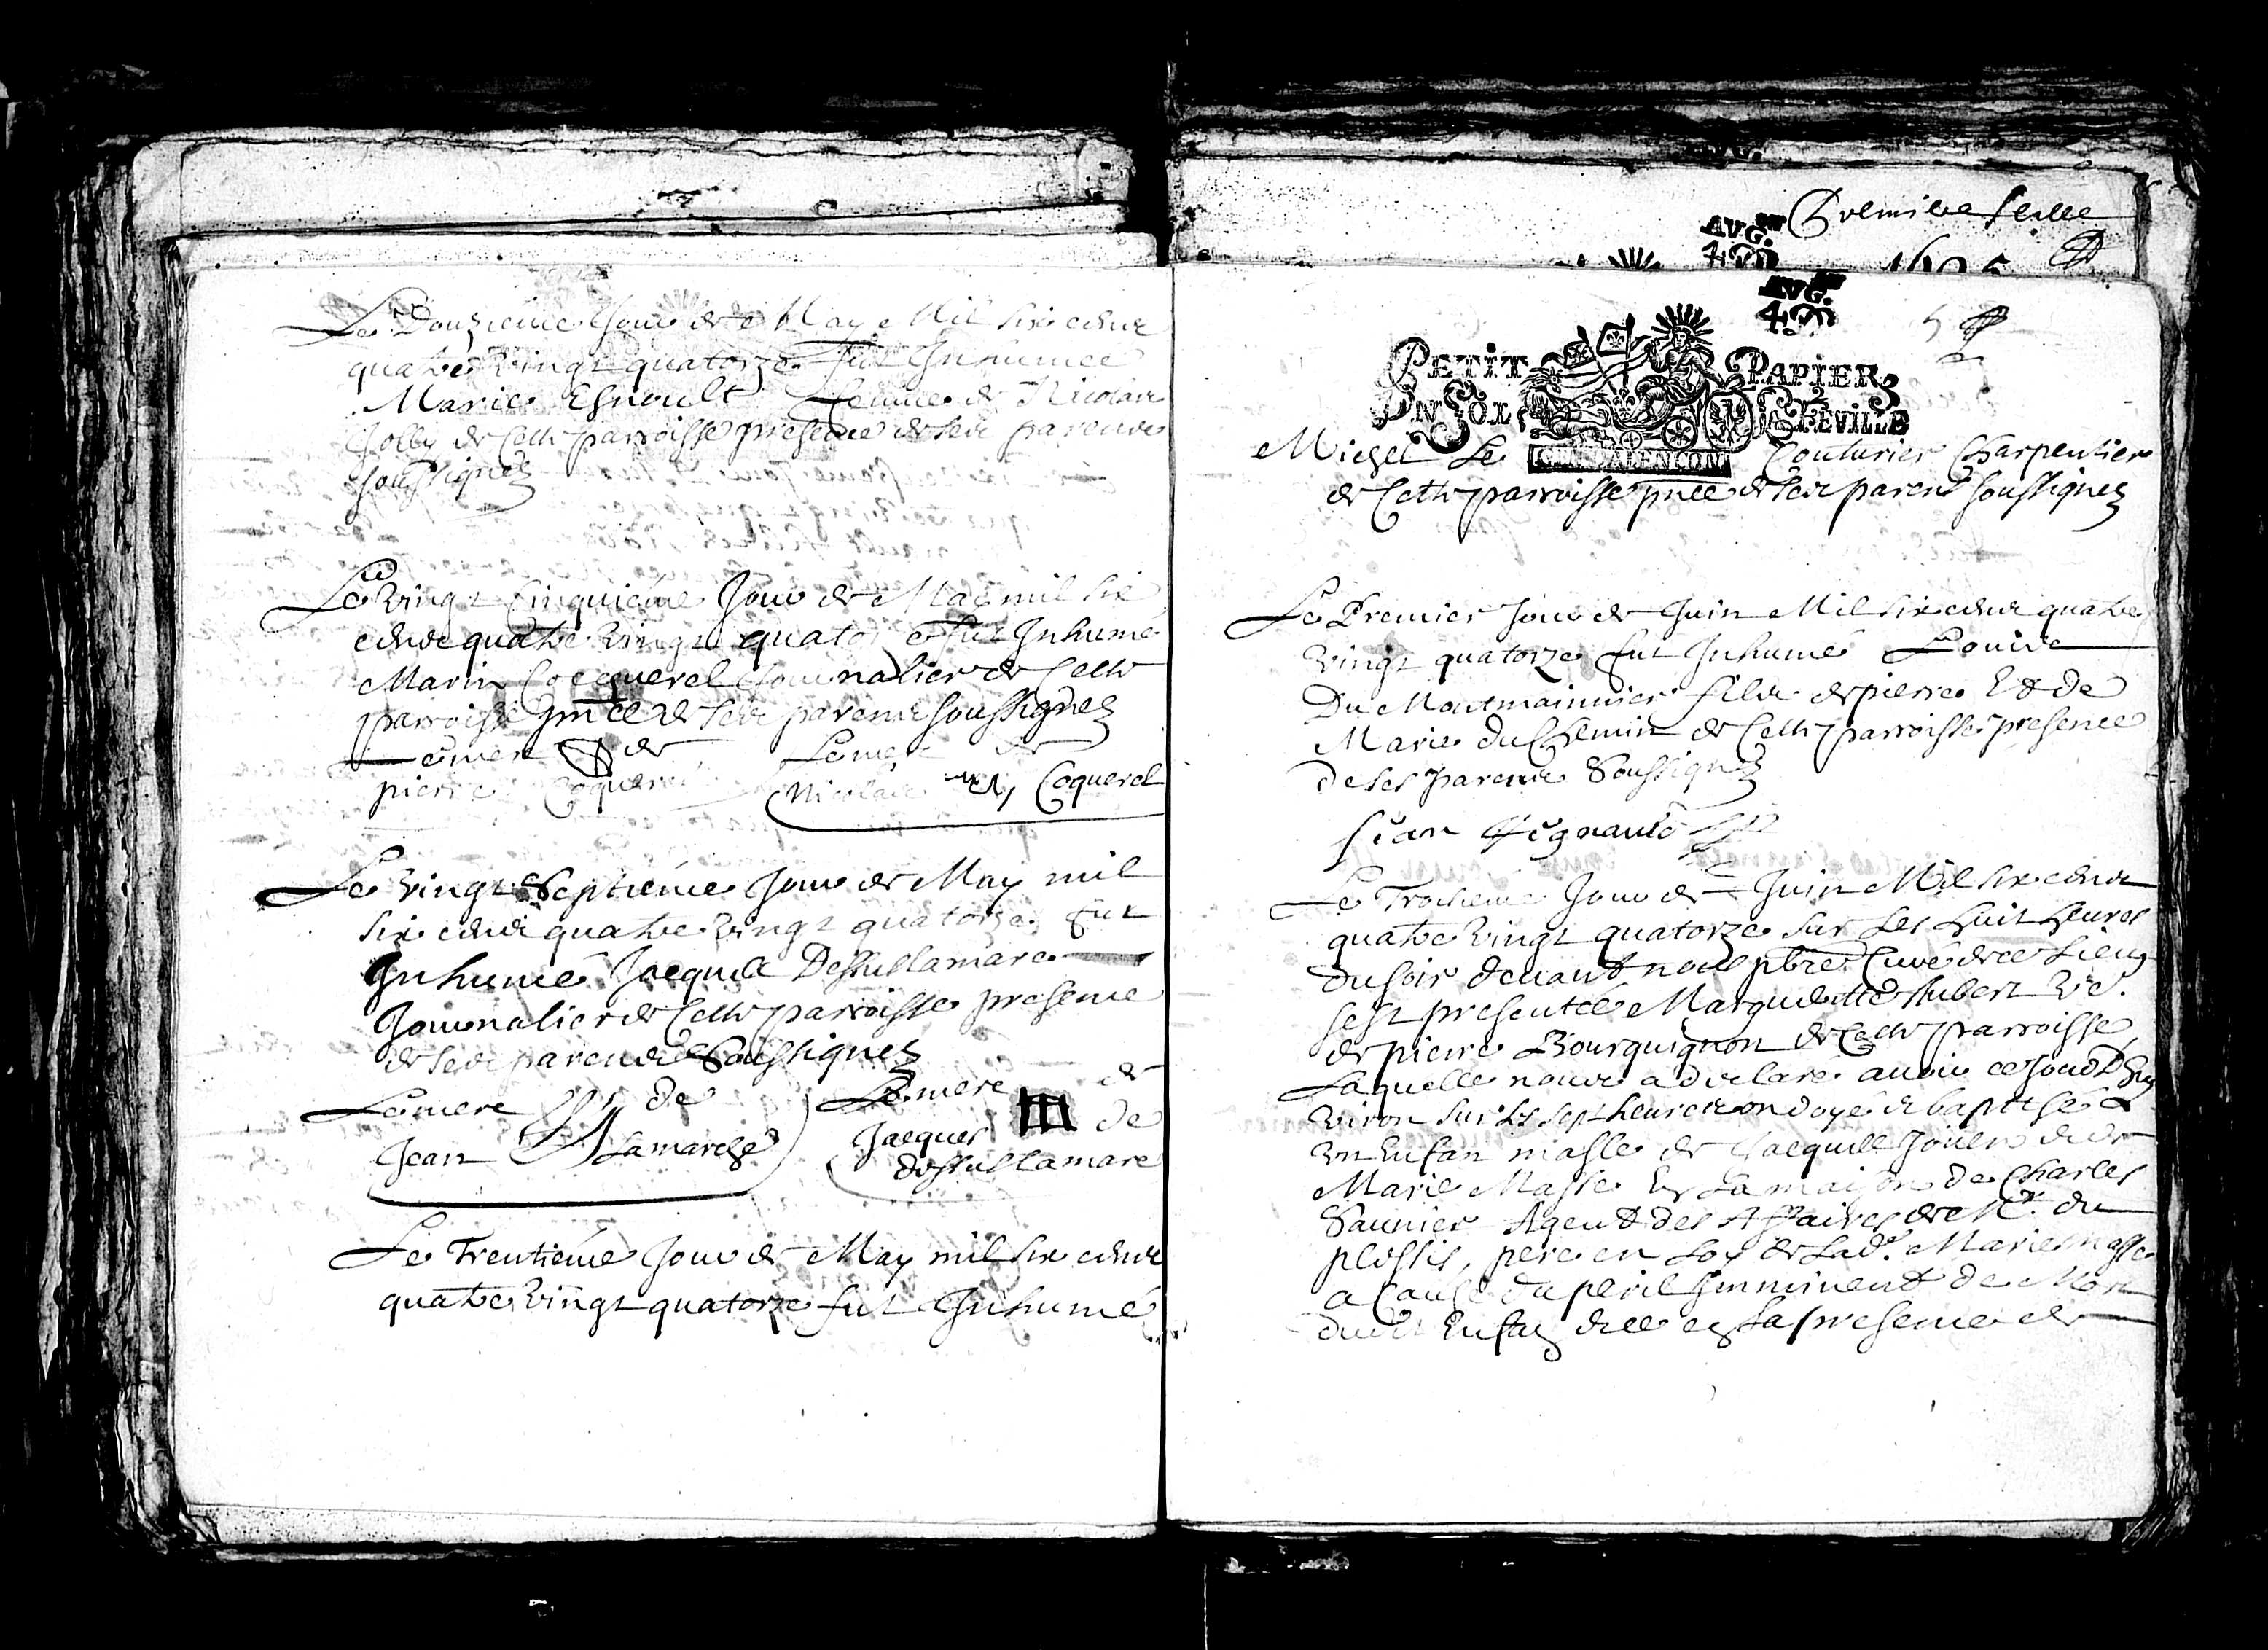 Le Douzieme Jour de May Mil six cents
quatre Vingt quatorze fut Inhumee
Marie Esnoult femme de Nicolas
Jolly de Cette parroisse presence de ses parents
soussignez
Le Vingt Cinquiéme Jour de May mil six
cents quatre Vingt quator e fut Inhumé
Marin Cocquerel Journalier de Cette
parroisse pnce de ses parents soussignez
Lemerc de Lemerc de
pierre Coquerel Nicolas Coquerel
Le Vingt Septiéme Jour de May mil
six cents quatre Vingt quatorze fut
Inhumé Jacques Dessuslamare
Journalier de Cette parroisse presence
de ses parents Soussignez
Lemerc de Lemerc de
Jean Lamarche Jacques de
dessuslamare
Le Trentiéme Jour de May mil six cents
quatre Vingt quatorze fut Inhumé
Premiere feille
AVG.
AVG.
5
PETIT PAPIER
VN SOL LE FEVILLE
GEN. DALENCON
Michel Le Couturier Charpentier
de Cette parroisse pnce de ses parens soussignez
Le Premier Jour de Juin Mil six cents quatre
Vingt quatorze fut Inhumé Louis
Du Montmainnier fils de pierre Et de
Marie du Chemin de Cette parroisse presence
de ses parents Soussignez
Jean
Le Troisieme Jour de Juin Mil six cents
quatre Vingt quatorze sur Les huit heures
du soir devant nous pbre Curé de ce Lieu
sest presentée Margueritte Aubert Vve.
de pierre Bourguignon de Cette parroisse,
Laquelle nous a declare avoir ce Jourdhuy
Viron sur Les sept heures ondoyé & baptisé
Vn Enfan masle de Jacques Jouen & de
Marie Masse En La maison de Charles
Saunier Agent des Affaires de Mr. du
plessis, pere en Loy de Lade. Marie masse
a Cause du peril Imminent de Mort
dudit Enfan & ce en La presence de